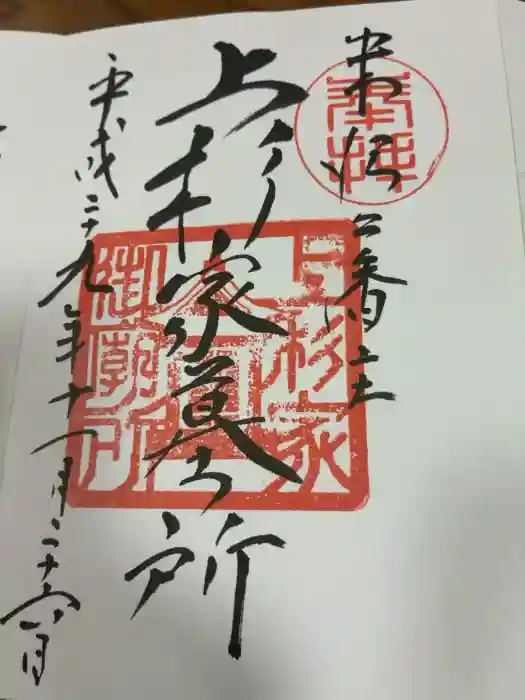 奉拝
上杉家墓所
平成二十九年十一月二十六日
上杉家
御廟所